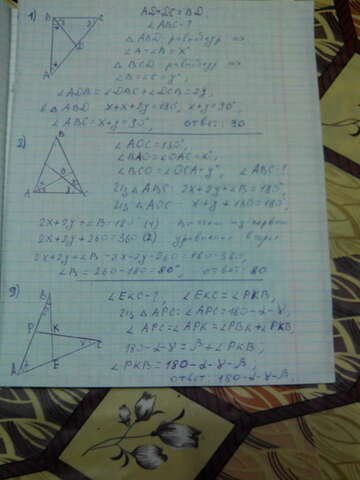 1) AD=DC=BD,
∠ABC-?
△ABD-равнобедр
∠A=∠B=x°
△BCD-равнобедр
∠B=∠C=y°,
∠ADB=∠DBC+∠DCB=2y,
△ABD x+x+2y=180°, x+y=90°,
∠ABC=x+y=90°, ответ: 90
2) ∠AOC=130°,
∠BAO=∠OAC=x°,
∠BCO=∠OCA=y°, ∠ABC-?
Из △ABC: 2x+2y+∠B=180°
Из △AOC- x+y+130=180°,
2x+2y+∠B=180° (1) из первого
2x+2y+260=360 (2) уравнения второе
2x+2y+∠B-2x-2y-260=180-360,
∠B=260-180=80°, ответ: 80
∠EKC-?, ∠EKC=∠PKB,
Из △APC: ∠APC=180-α-γ,
∠APC=∠APK=∠PBK+∠PKB
180-α-γ=β+∠PKB,
∠PKB=180-α-γ-β,
ответ: 180-α-γ-β.